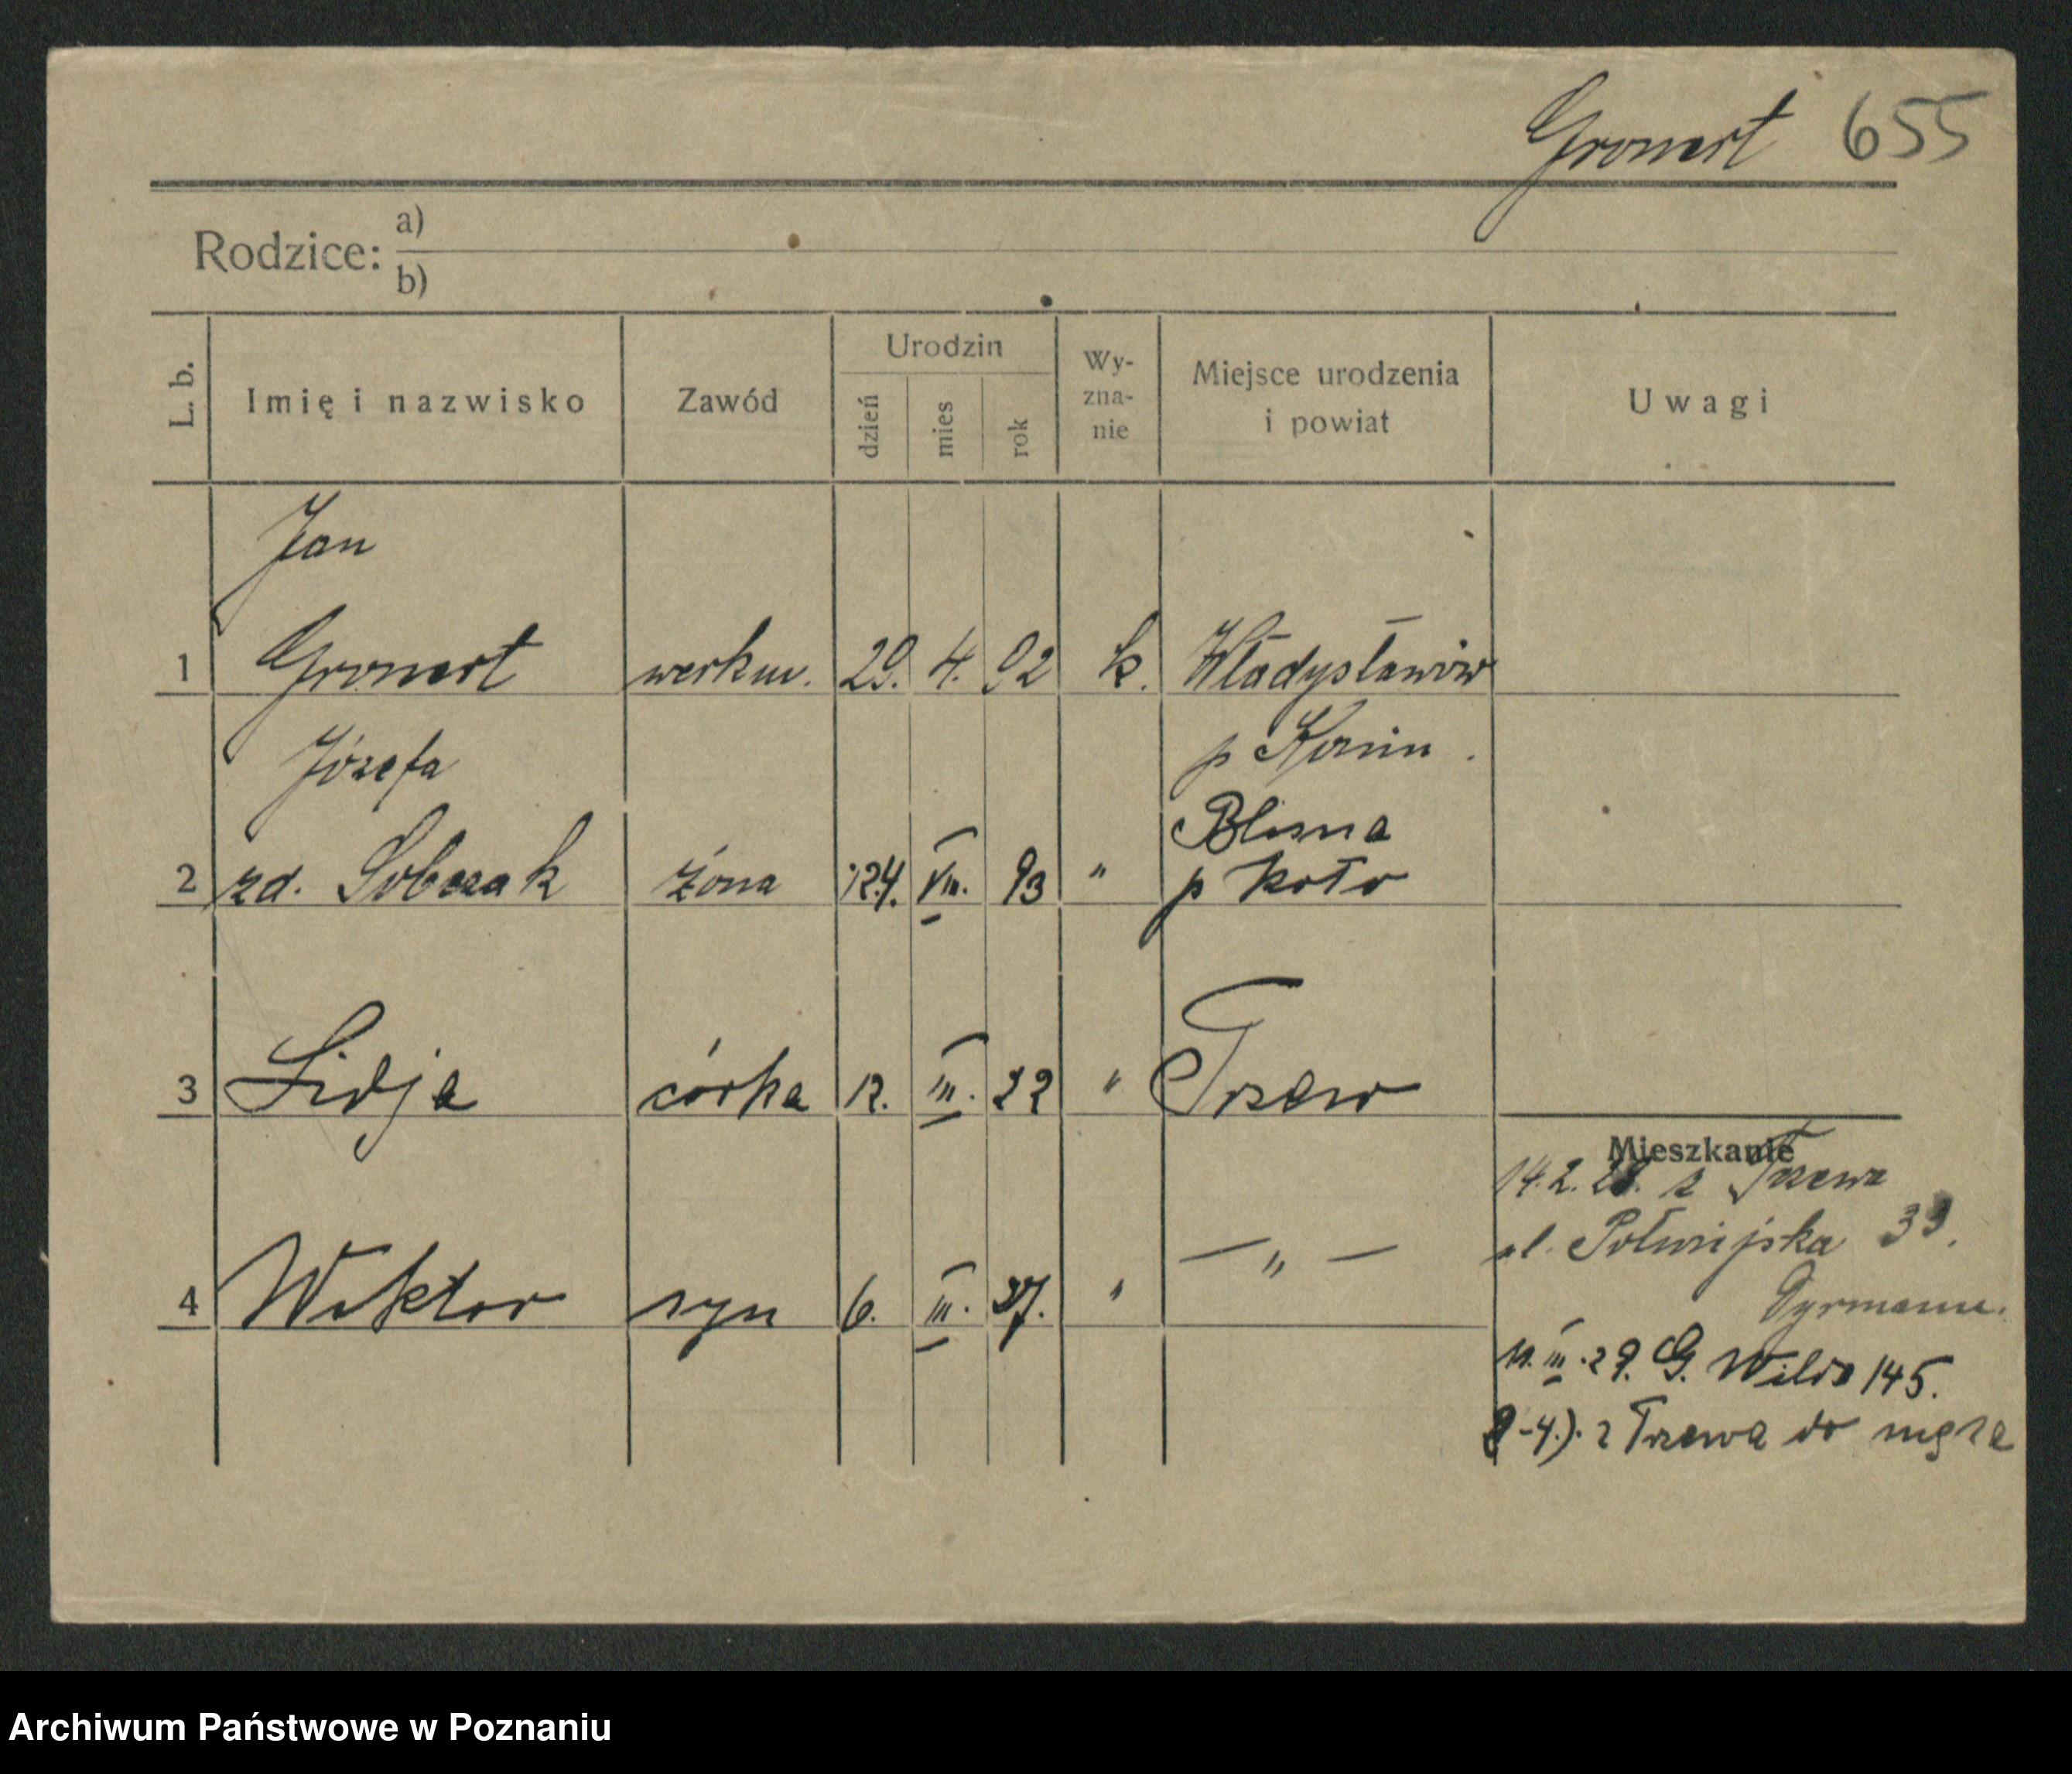 Gronert 655
Rodzice: a)
b)
L. b. Imię i nazwisko Zawód Urodzin dzień mies rok Wy-zna-nie Miejsce urodzenia i powiat Uwagi
Jan
1 Gronert werkm. 29. 4. 92 k. Władysławów
Józefa p Konin.
Blizna
2 zd. Sobczak żona 24. VII. 93 " p Koło
3 Lidja córka 12. III. 22 " Tczew
Mieszkanie
14.2.28. z Tczewa
ul. Półwiejska 33.
4 Wiktor syn 6. III. 27. " — " —
III. 29. G. Wilda 145.
z Tczewa do męża